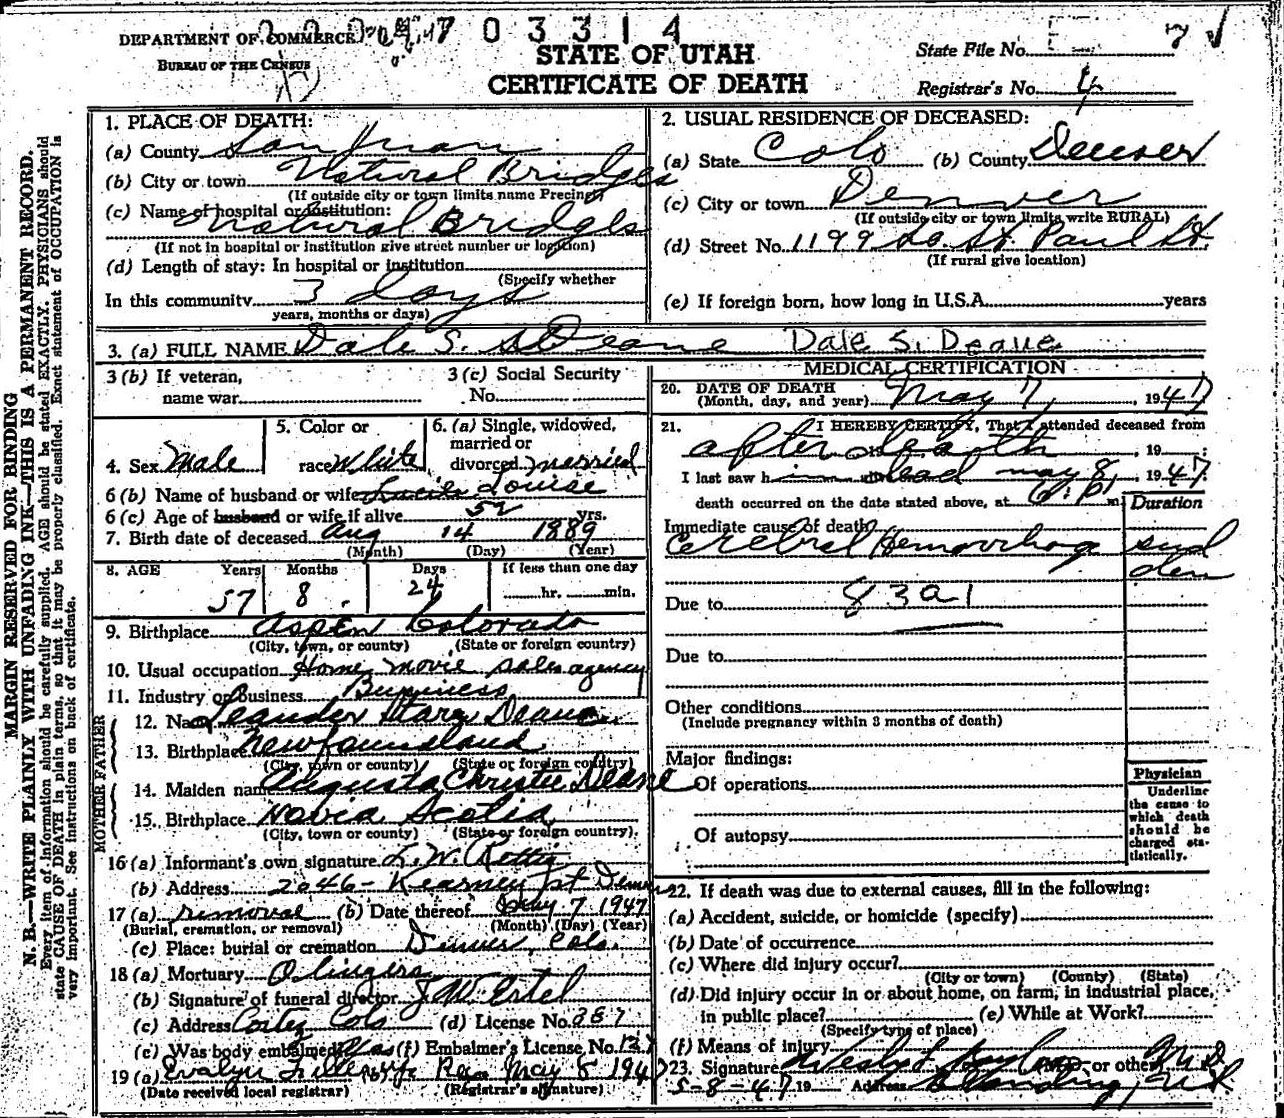 DEPARTMENT OF COMMERCE
BUREAU OF THE CENSUS
0 3 3 1 4
STATE OF UTAH
CERTIFICATE OF DEATH
State File No.
Registrar's No. 4
MARGIN RESERVED FOR BINDING
N. B.—WRITE PLAINLY WITH UNFADING INK—THIS IS A PERMANENT RECORD.
Every item of information should be carefully supplied. AGE should be stated EXACTLY. PHYSICIANS should
state CAUSE OF DEATH in plain terms, so that it may be properly classified. Exact statement of OCCUPATION is
very important. See instructions on back of certificate.
1. PLACE OF DEATH:
(a) County San Juan
(b) City or town Natural Bridges
(If outside city or town limits name Precinct)
(c) Name of hospital or institution:
Natural Bridges
(If not in hospital or institution give street number or location)
(d) Length of stay: In hospital or institution
(Specify whether
In this community 3 days
years, months or days)
2. USUAL RESIDENCE OF DECEASED:
(a) State Colo (b) County Denver
(c) City or town Denver
(If outside city or town limits write RURAL)
(d) Street No. 1199 So. St. Paul St.
(If rural give location)
(e) If foreign born, how long in U.S.A. years
3. (a) FULL NAME Dale S. Deane Dale S. Deane
3 (b) If veteran,
name war
3 (c) Social Security
No.
4. Sex Male
5. Color or
race White
6. (a) Single, widowed,
married or
divorced married
6 (b) Name of husband or wife Louise
6 (c) Age of husband or wife if alive 52 yrs.
7. Birth date of deceased Aug 14 1889
(Month) (Day) (Year)
8. AGE Years Months Days If less than one day
57 8 24 hr. min.
9. Birthplace Aspen Colorado
(City, town, or county) (State or foreign country)
10. Usual occupation Home movie sales agency
11. Industry or Business Business
FATHER
12. Name Leander Deane
13. Birthplace Newfoundland
(City, town or county) (State or foreign country)
MOTHER
14. Maiden name Augusta Christie Deane
15. Birthplace Novia Scotia
(City, town or county) (State or foreign country)
16 (a) Informant's own signature L. W. Rettig
(b) Address 2046 - Kearney St Denver
17 (a) removal (b) Date thereof May 7 1947
(Burial, cremation, or removal) (Month) (Day) (Year)
(c) Place: burial or cremation Denver, Colo.
18 (a) Mortuary Olingers
(b) Signature of funeral director J. W. Ertel
(c) Address Cortez Colo (d) License No. 387
(e) Was body embalmed? Yes (f) Embalmer's License No.
19 (a) Evalyn Reg. May 8 1947
(Date received local registrar) (Registrar's signature)
MEDICAL CERTIFICATION
20. DATE OF DEATH
(Month, day, and year) May 7, 1947
21. I HEREBY CERTIFY, That I attended deceased from
after death , 19
I last saw him dead May 8, 1947
death occurred on the date stated above, at 6 P. m.
Duration
Immediate cause of death
Cerebral Hemorrhage sudden
Due to 83a1
Due to
Other conditions
(Include pregnancy within 3 months of death)
Major findings:
Of operations
Of autopsy
Physician
Underline
the cause to
which death
should be
charged sta-
tistically.
22. If death was due to external causes, fill in the following:
(a) Accident, suicide, or homicide (specify)
(b) Date of occurrence
(c) Where did injury occur?
(City or town) (County) (State)
(d) Did injury occur in or about home, on farm, in industrial place,
in public place? (e) While at Work?
(Specify type of place)
(f) Means of injury
23. Signature or other M.D.
5-8-47 19 Address Blanding, Ut